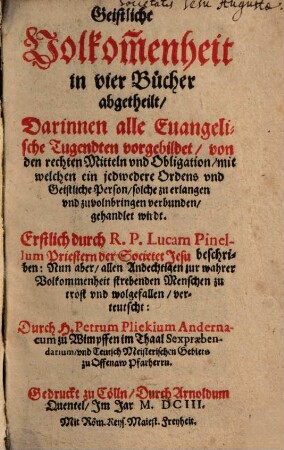 Societatis Jesu Augustæ
Geistliche
Volkom̃enheit
in vier Bücher
abgetheilt/
Darinnen alle Euangeli-
sche Tugendten vorgebildet/ von
den rechten Mitteln vnd Obligation/ mit
welchen ein jedwedere Ordens vnd
Geistliche Person/ solche zu erlangen
vnd zuvolnbringen verbunden/
gehandlet wirdt.
Erstlich durch R. P. Lucam Pinel-
lum Priestern der Societet Jesu beschri-
ben: Nun aber/ allen Andechtigen zur wahrer
Volkommenheit strebenden Menschen zu
trost vnd wolgefallen/ ver-
teutscht:
Durch H. Petrum Pliekium Anderna-
cum zu Wimpffen im Thaal Sexpræben-
datium/ vnd Teutsch Meisterischen Gebiets
zu Offenaw Pfarherrn.
Gedruckt zu Cölln/ Durch Arnoldum
Quentel/ Im Jar M. DCIII.
Mit Röm. Keys. Maiest. Freyheit.